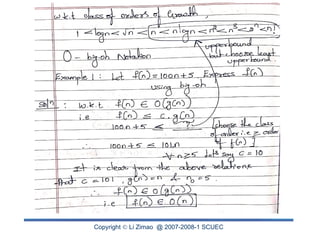 w.k.t class of orders of Growth,
1 < logn < √n < n < nlogn < n² < n³ < 2ⁿ < n!
upperbound
O - big oh Notation
but choose least
upperbound
Example 1 : Let f(n)=100n+5 Express f(n)
using big oh
Soln : w.k.t f(n) ∈ O(g(n))
i.e f(n) ≤ c.g(n)
100n+5 ≤ ?
choose the class
of order i.e ≥ order
of f(n)
∴ 100n+5 ≤ 101n
∀ n≥5 Let's say c = 10
It is clear from the above relations
that c = 101, g(n)=n & n₀ = 5.
∴ f(n) ∈ O(g(n))
i.e f(n) ∈ O(n)
Copyright © Li Zimao @ 2007-2008-1 SCUEC